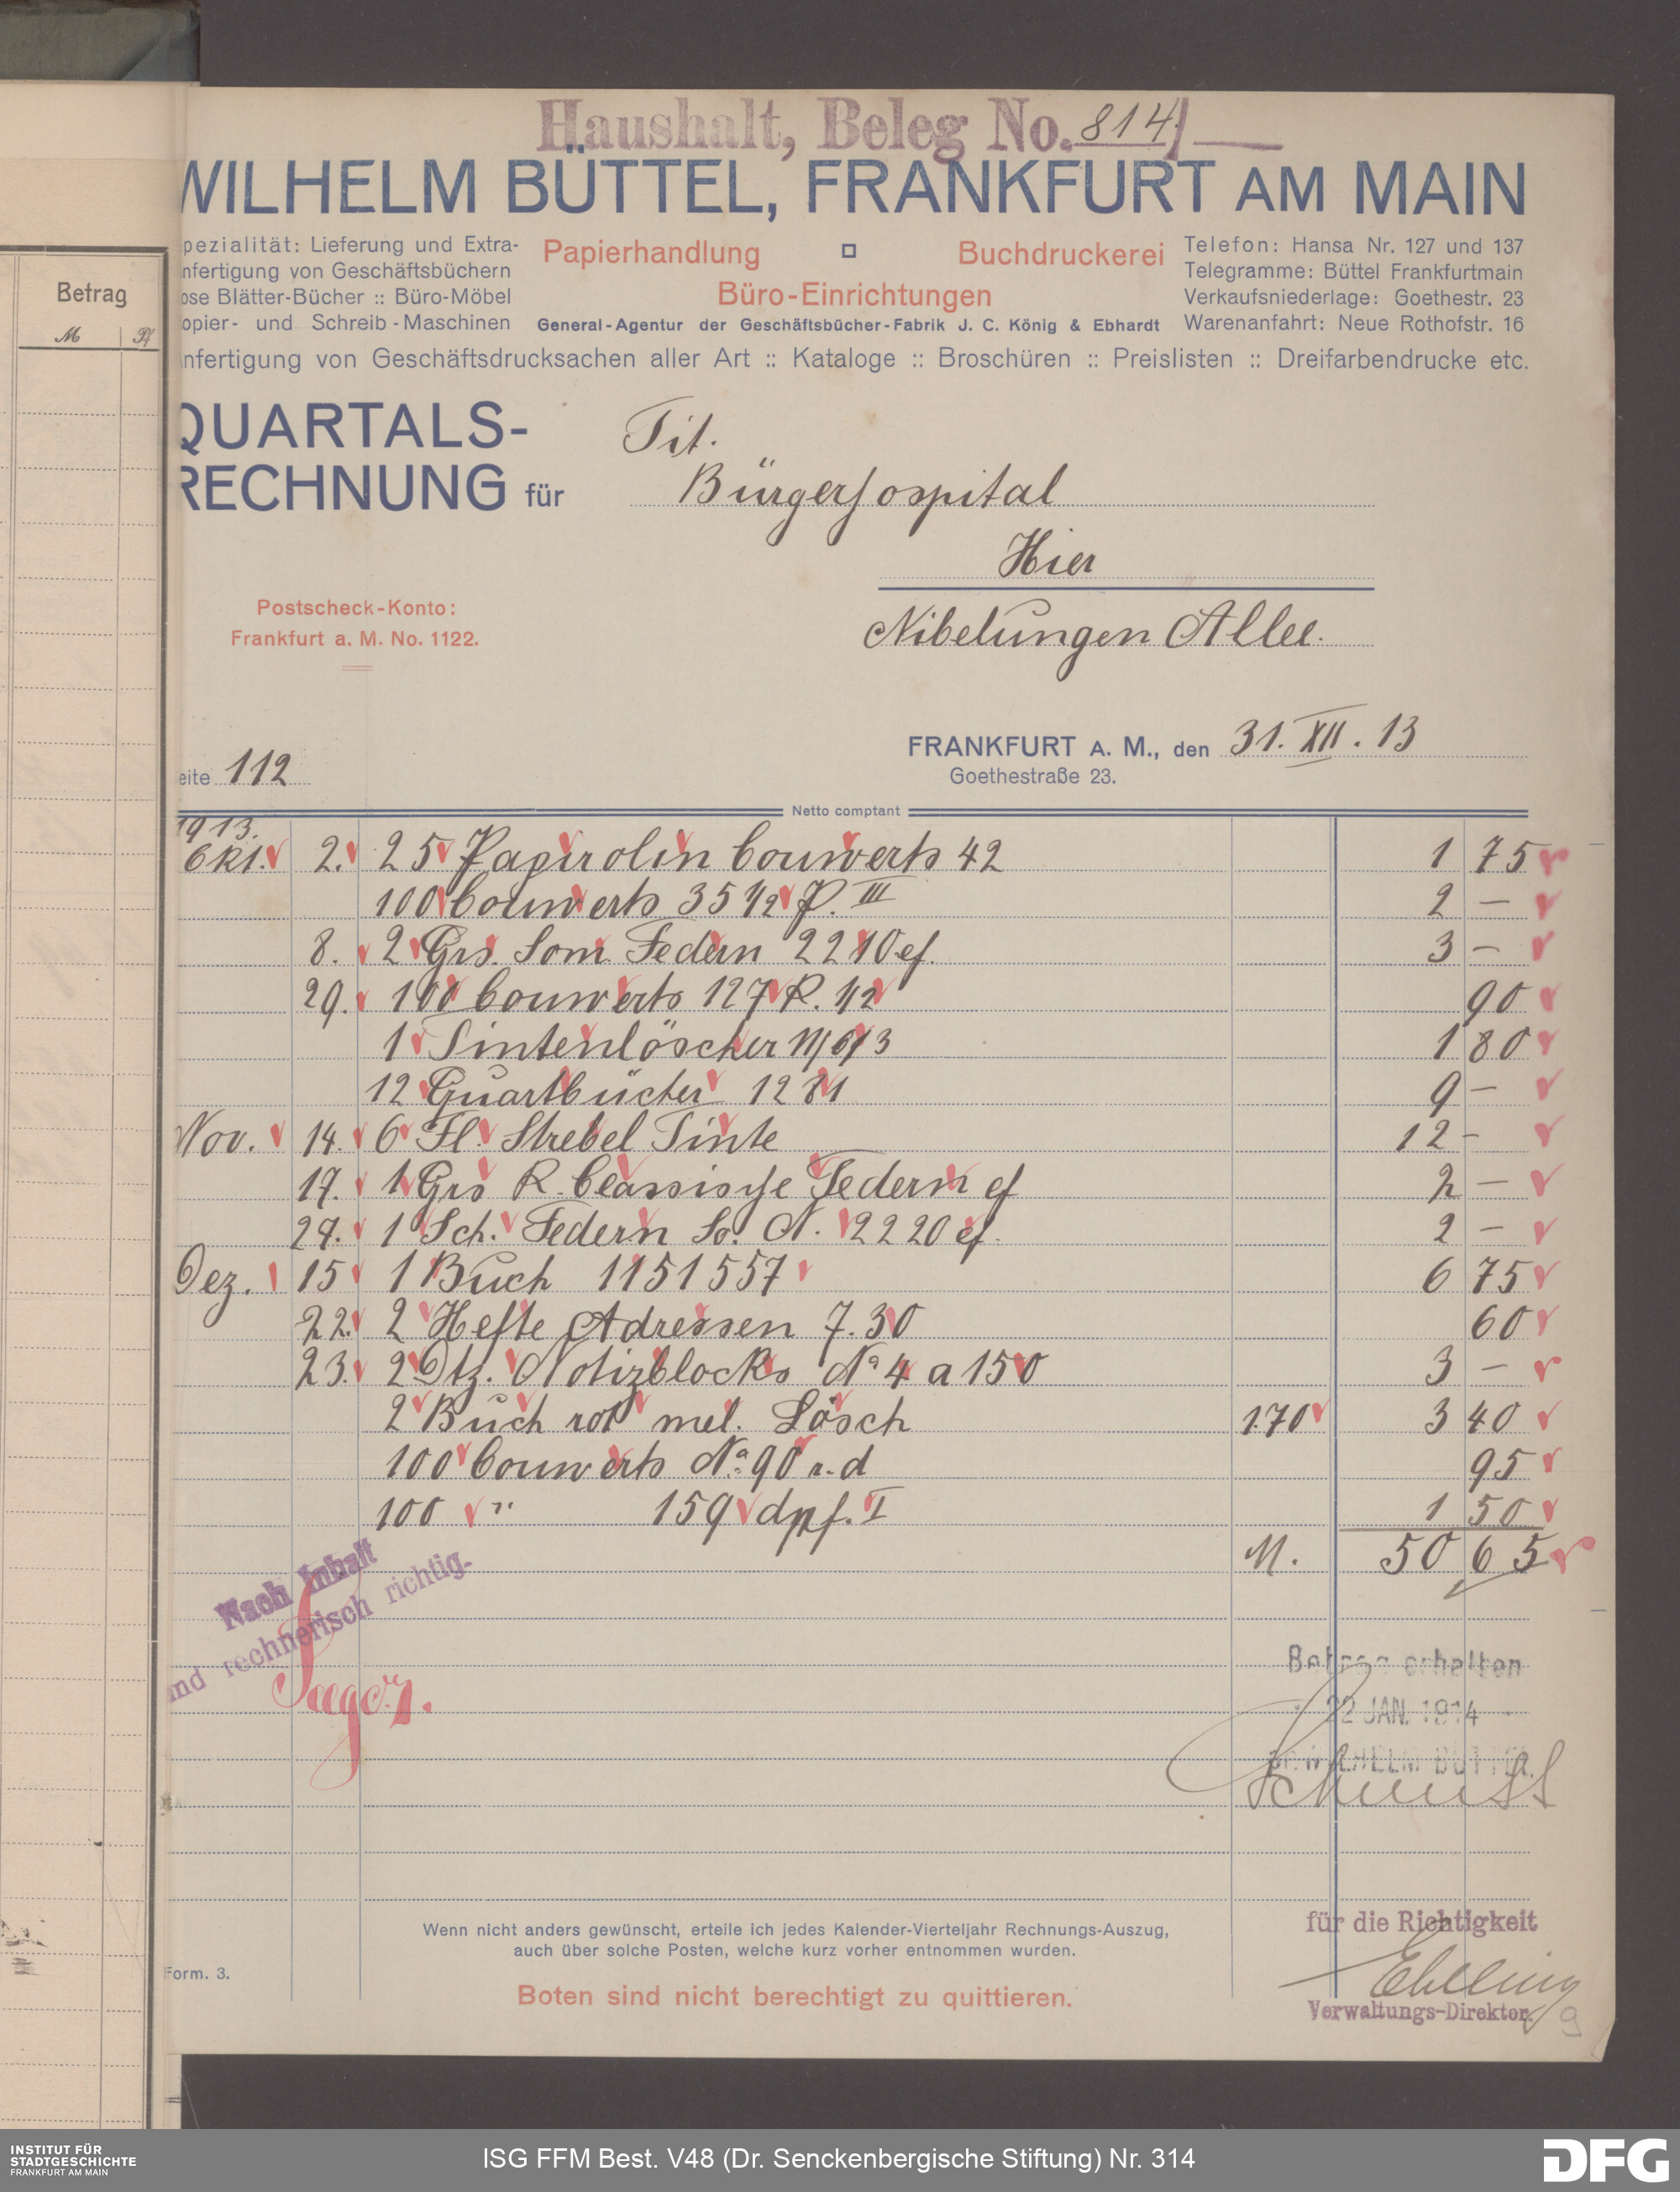 Haushalt, Beleg No. 814/
WILHELM BÜTTEL, FRANKFURT AM MAIN
pezialität: Lieferung und Extra-
nfertigung von Geschäftsbüchern
ose Blätter-Bücher :: Büro-Möbel
opier- und Schreib-Maschinen
Papierhandlung Buchdruckerei
Büro-Einrichtungen
General-Agentur der Geschäftsbücher-Fabrik J. C. König & Ebhardt
Telefon: Hansa Nr. 127 und 137
Telegramme: Büttel Frankfurtmain
Verkaufsniederlage: Goethestr. 23
Warenanfahrt: Neue Rothofstr. 16
nfertigung von Geschäftsdrucksachen aller Art :: Kataloge :: Broschüren :: Preislisten :: Dreifarbendrucke etc.
Betrag
M Pf
QUARTALS-
RECHNUNG für
Tit.
Bürgerhospital
Hier
Nibelungen Allee.
Postscheck-Konto:
Frankfurt a. M. No. 1122.
FRANKFURT A. M., den 31. XII. 13
Goethestraße 23.
eite 112
Netto comptant
1913.
Okt. 2. 25 Papirolin Couwerts 42 1 75
100 Couwerts 35 1/2 P. III 2 —
8. 2 Grs. Som Federn 2210 ef. 3 —
29. 100 Couwerts 127 R. 1/2 90
1 Tintenlöscher 1 80
12 Quartbücher 1281 9 —
Nov. 14. 6 Fl. Strebel Tinte 12 —
19. 1 Grs R. Classische Federn ef 2 —
27. 1 Sch. Federn So. N. 2220 ef. 2 —
Dez. 15 1 Buch 1151557 6 75
22. 2 Hefte Adressen 7.30 60
23. 2 Dtz. Notizblocks No 4 a 150 3 —
2 Buch rot mel. Lösch 1.70 3 40
100 Couwerts No 90 r. d 95
100 " 159 dpf. I 1 50
M. 50 65
Nach Inhalt
und rechnerisch richtig.
Betrag erhalten
22 JAN. 1914
WILHELM BÜTTEL
Wenn nicht anders gewünscht, erteile ich jedes Kalender-Vierteljahr Rechnungs-Auszug,
auch über solche Posten, welche kurz vorher entnommen wurden.
Form. 3.
Boten sind nicht berechtigt zu quittieren.
für die Richtigkeit
Ebeling
Verwaltungs-Direktor.
9
INSTITUT FÜR
STADTGESCHICHTE
FRANKFURT AM MAIN
ISG FFM Best. V48 (Dr. Senckenbergische Stiftung) Nr. 314
DFG